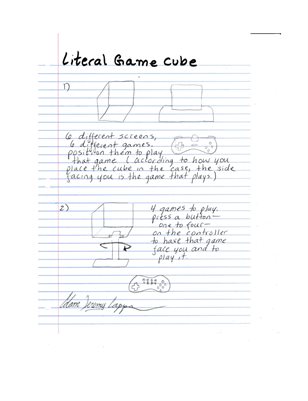 Literal Game Cube
1)
6 different screens,
6 different games.
position them to play
that game (according to how you
place the cube in the case, the side
facing you is the game that plays)
2)
4 games to play.
press a button—
one to four—
on the controller
to have that game
face you and to
play it.
Jeremy